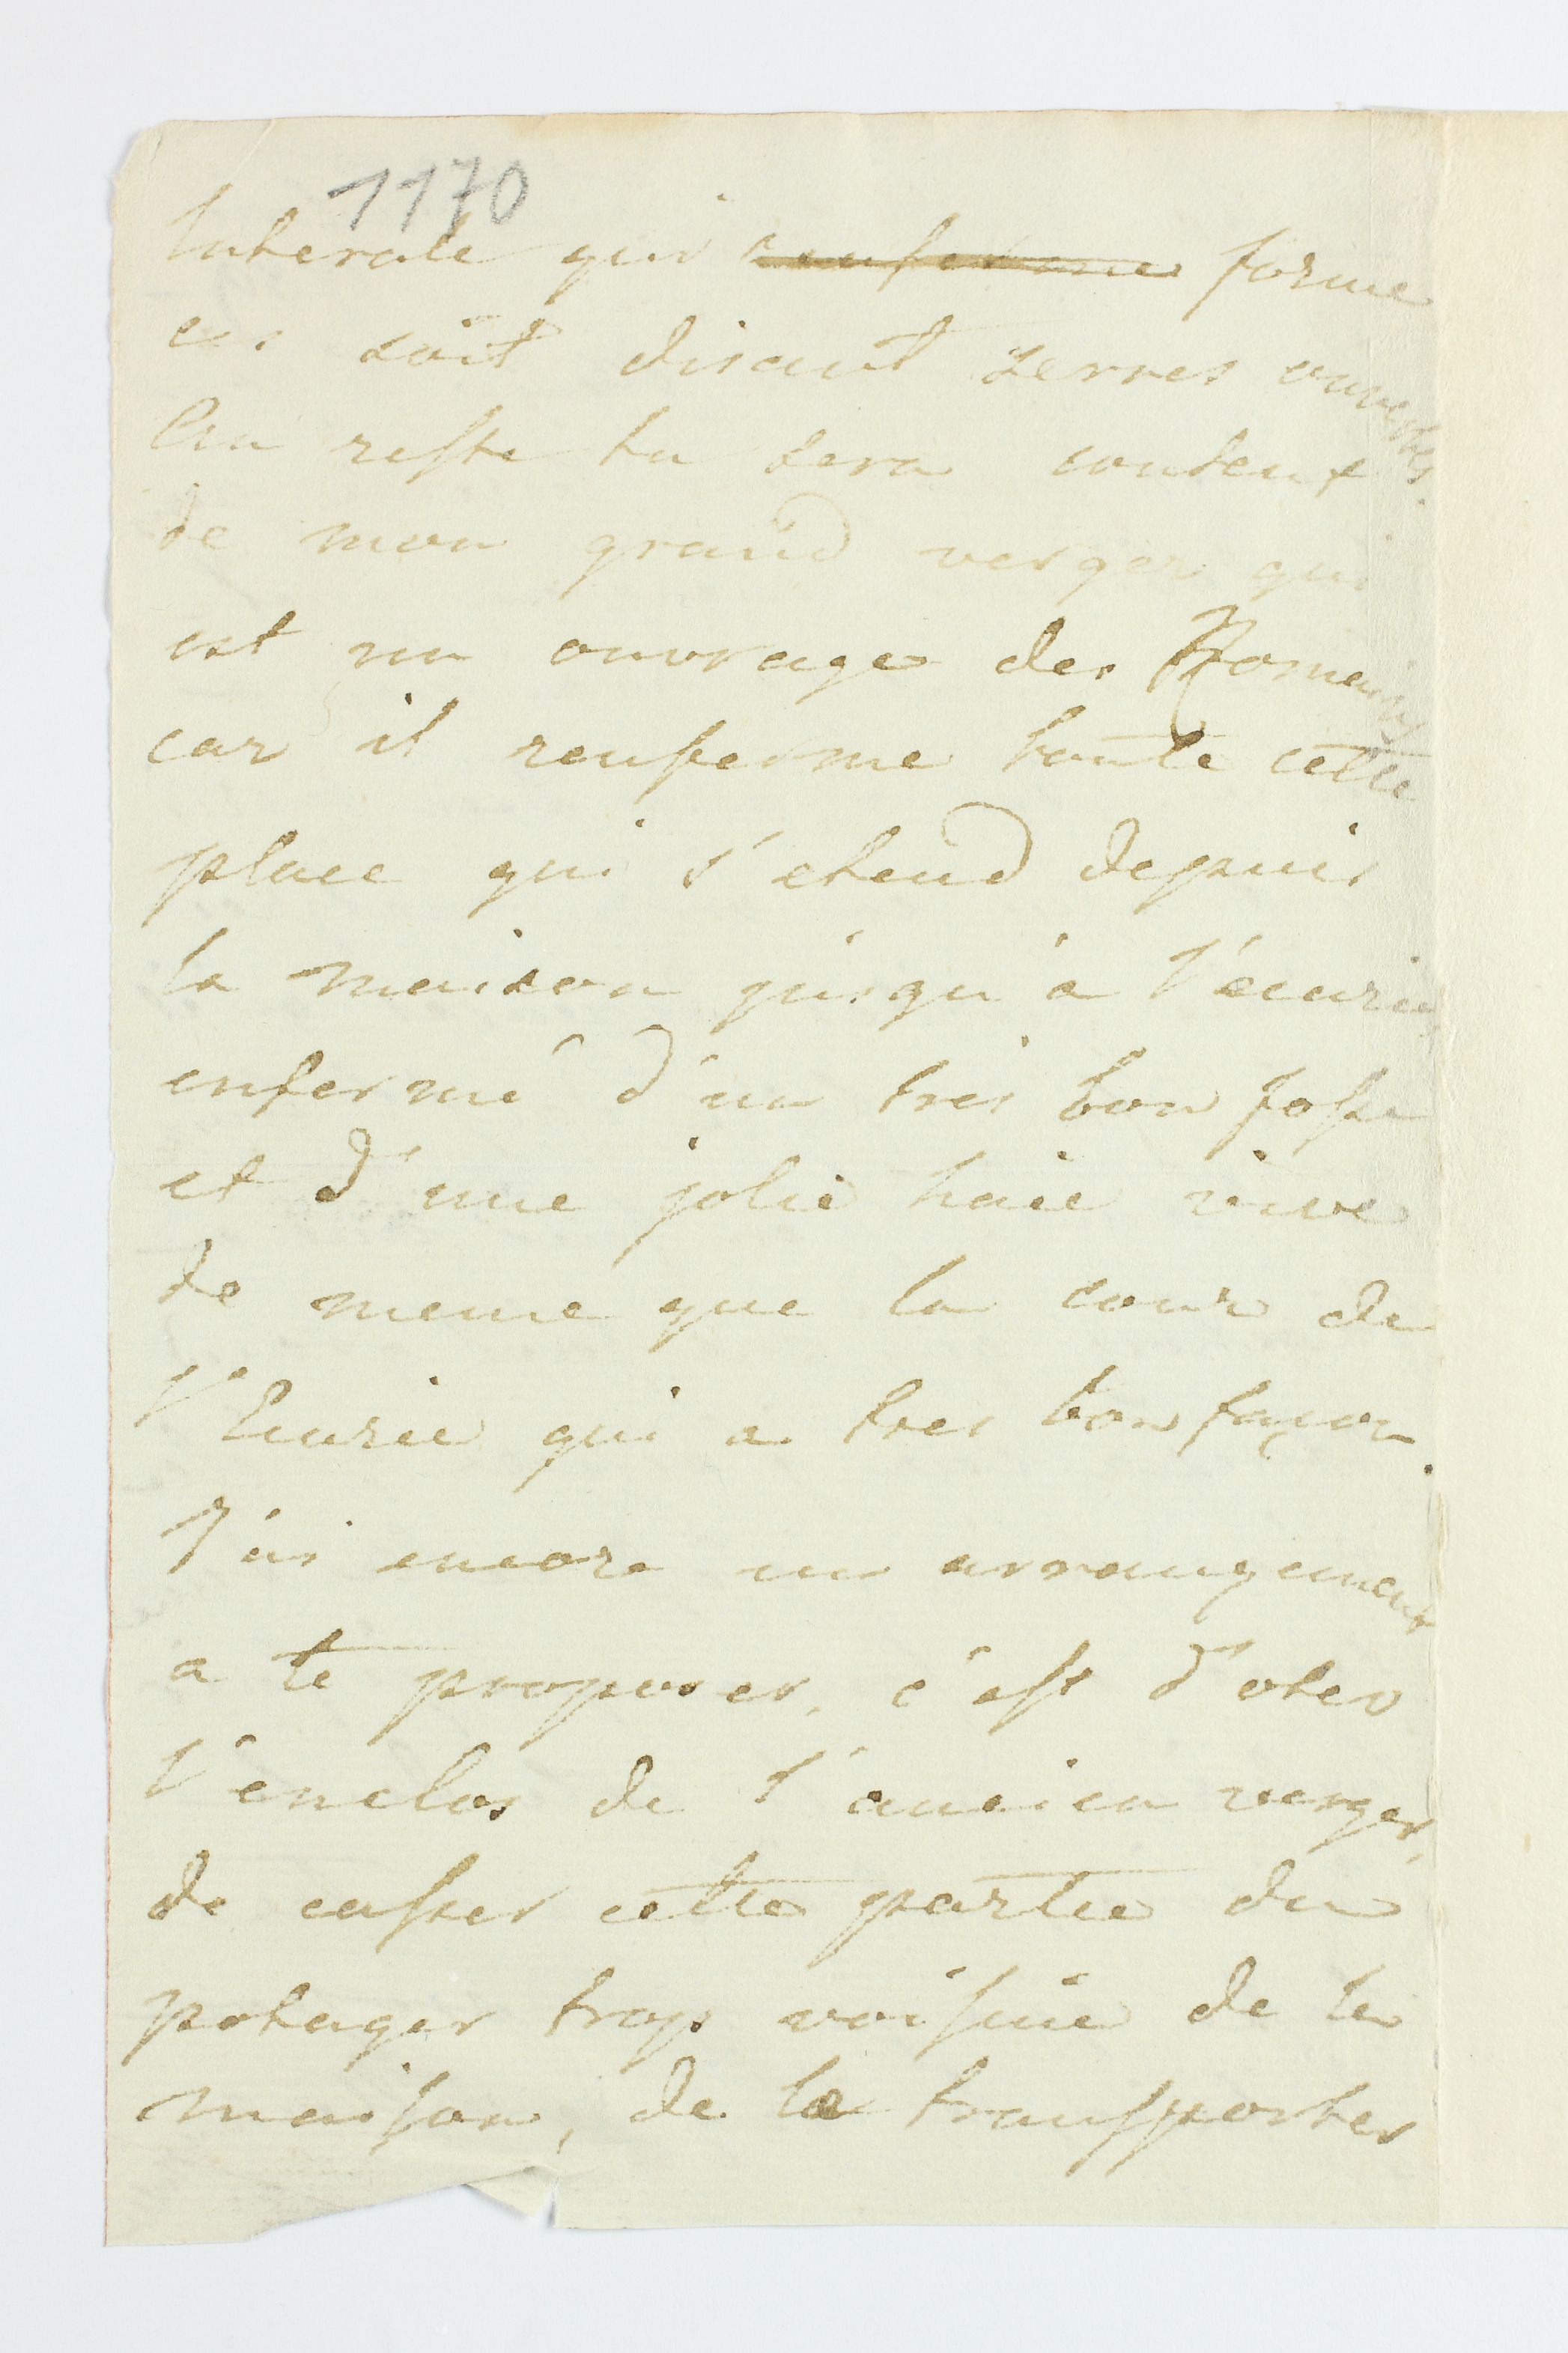 1170
laterale qui renferme forme
ces soit disant serres ouvertes.
Au reste tu sera content
de mon grand verger qui
est un ouvrage des Romains
car il renferme toute cette
place qui s'etend depuis
la maison jusqu'a l'écurie
enfermé d'un tres bon fosse
et d'une jolie haie vive
de meme que la cour de
l'Ecurie qui a tres bon façon.
J'ai encore un arrangement
a te proposer, c'est d'oter
l'enclos de l'ancien verger,
de casser cette partie du
potager trop voisine de la
maison, de la transporter